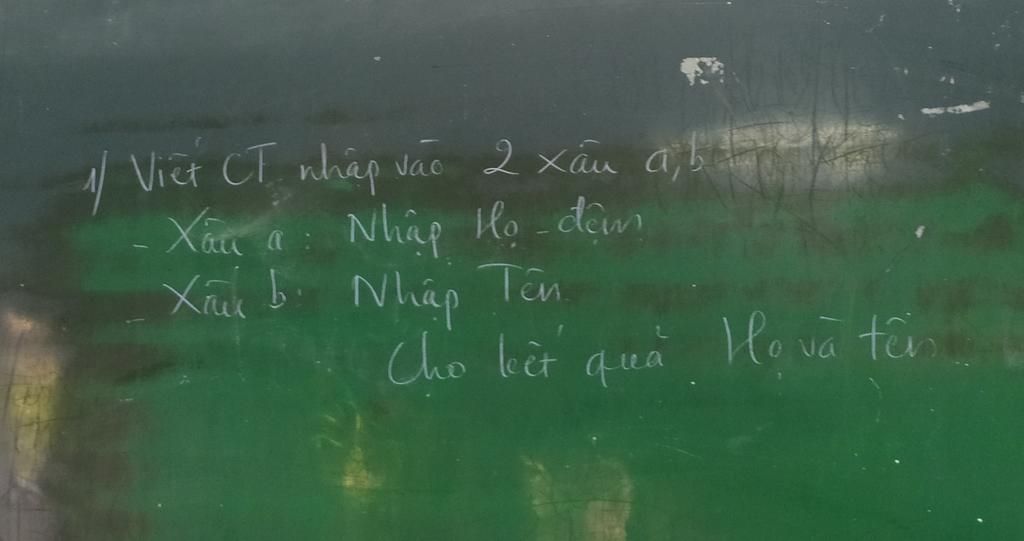 1/ Viết CT nhập vào 2 xâu a,b
- Xâu a: Nhập Họ - đệm
- Xâu b: Nhập Tên
Cho kết quả Họ và tên